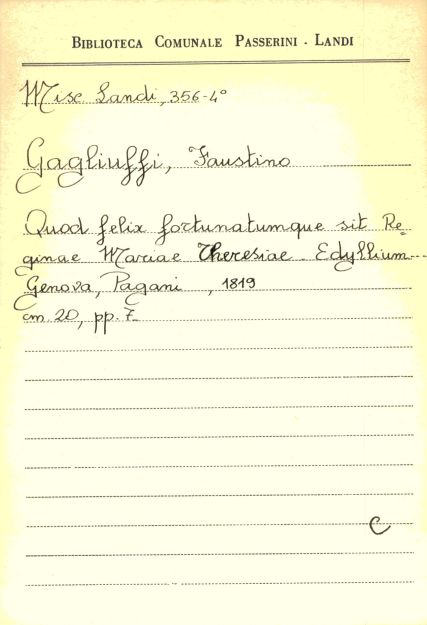 BIBLIOTECA COMUNALE PASSERINI - LANDI
Misc Landi, 356-4°
Gagliuffi, Faustino
Quod felix fortunatumque sit Re=
ginae Mariae Theresiae. Edyllium
Genova, Pagani, 1819
cm 20, pp. 7
C